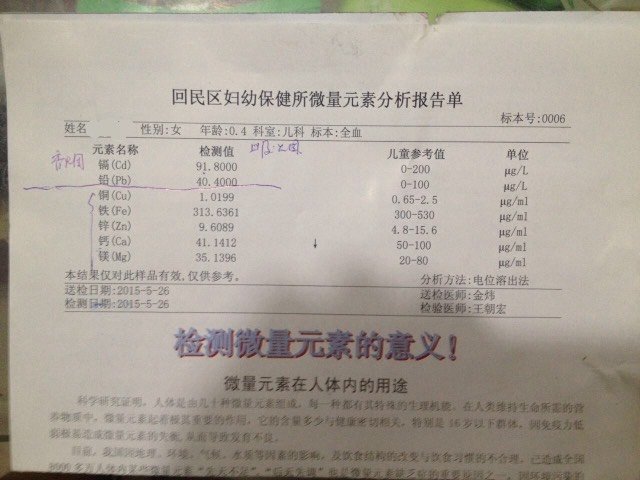 回民区妇幼保健所微量元素分析报告单
标本号:0006
姓名 性别:女 年龄:0.4 科室:儿科 标本:全血
元素名称 检测值 儿童参考值 单位
镉(Cd) 91.8000 0-200 μg/L
铅(Pb) 40.4000 0-100 μg/L
铜(Cu) 1.0199 0.65-2.5 μg/ml
铁(Fe) 313.6361 300-530 μg/ml
锌(Zn) 9.6089 4.8-15.6 μg/ml
钙(Ca) 41.1412 ↓ 50-100 μg/ml
镁(Mg) 35.1396 20-80 μg/ml
本结果仅对此样品有效,仅供参考。 分析方法:电位溶出法
送检日期:2015-5-26 送检医师:金炜
检测日期:2015-5-26 检验医师:王朝宏
检测微量元素的意义!
微量元素在人体内的用途
科学研究证明,人体是由几十种微量元素组成,每一种都有其特殊的生理机能。在人类维持生命所需的营
养物质中,微量元素起着极其重要的作用,它的含量多少与健康密切相关,特别是16岁以下群体,因免疫力低
目前,我国因地理、环境、气候、水质等因素的影响,及饮食结构的改变与饮食习惯的不合理,已造成全国